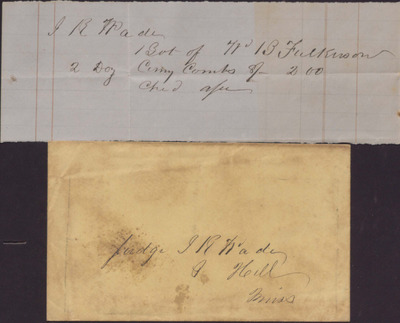 J R Wade
Bot of Wm B Fulkerson
2 Doz Curry Combs $ 2 00
Judge J R Wade
P Hill
Miss